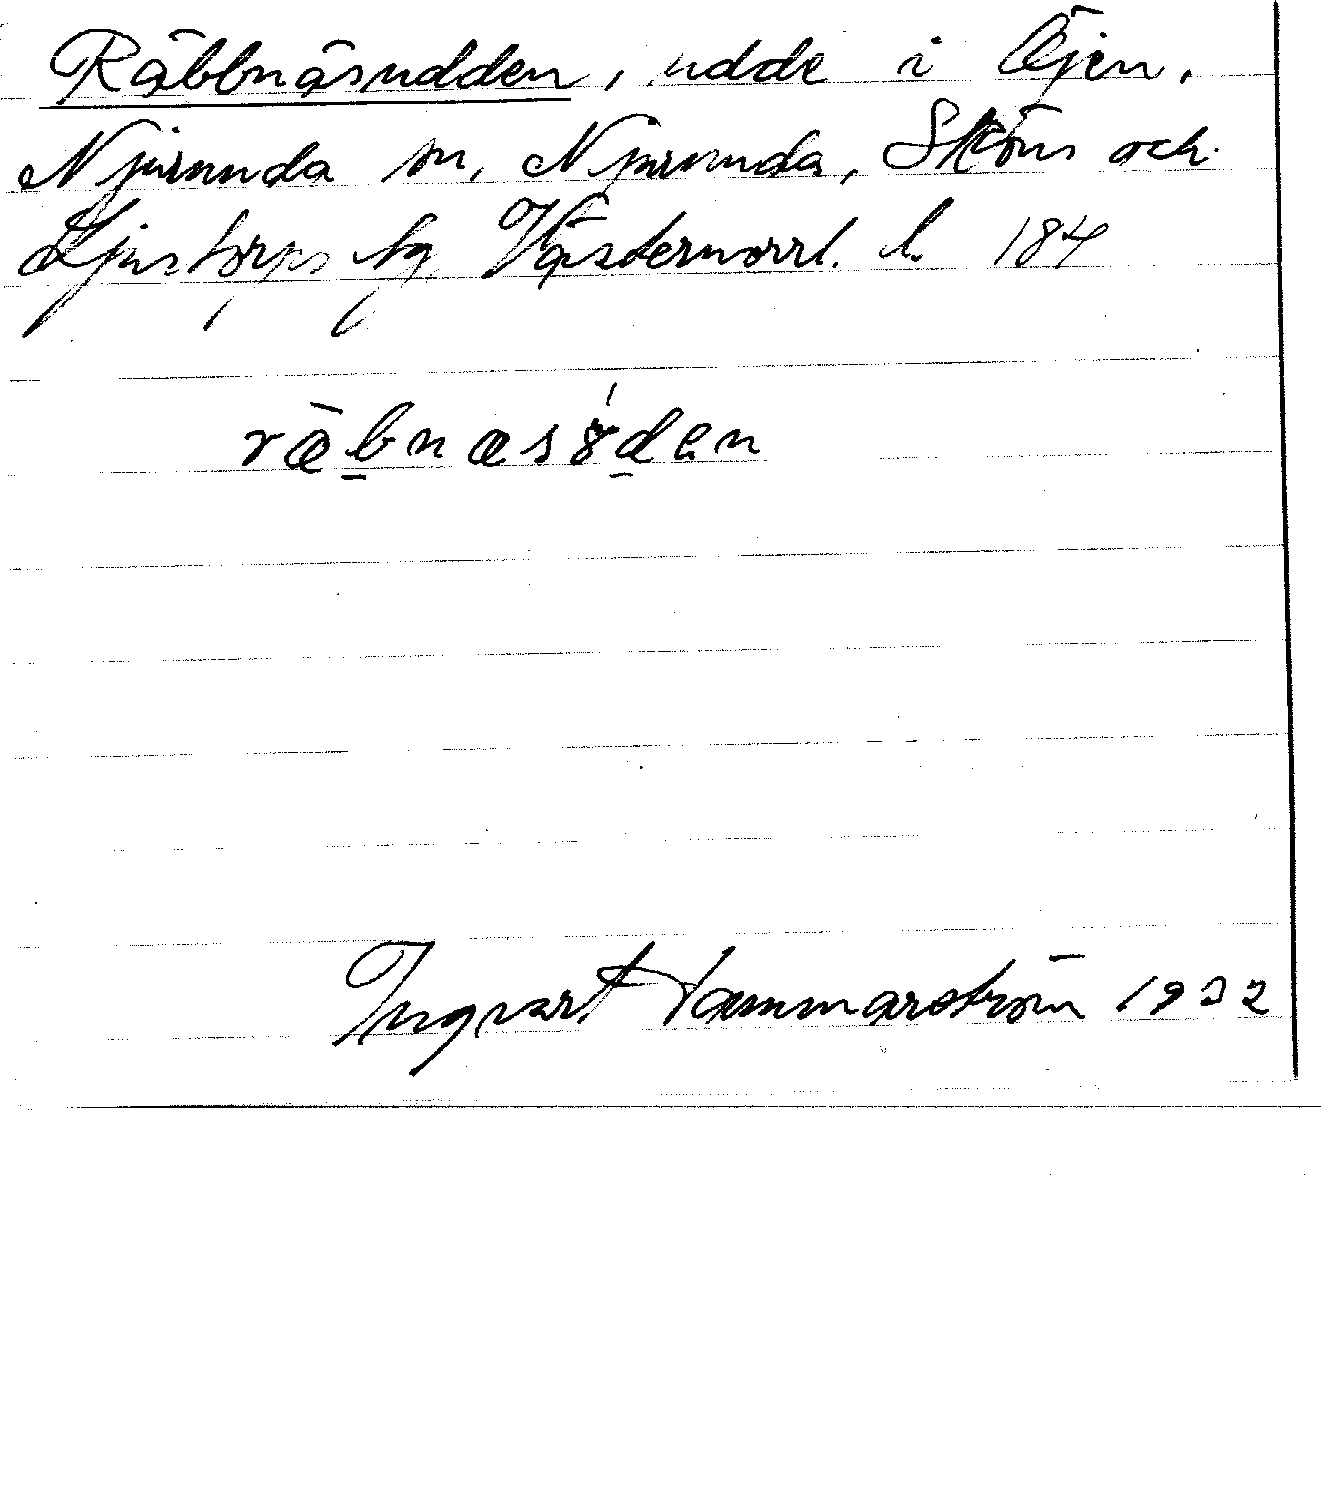 Räbbnäsudden, udde i Öjen,
Njurunda sn, Njurunda, Sköns och
Ljustorps tg, Västernorrl. l. 184
ræbnæsɞden
Ingvart Hammarström 1932